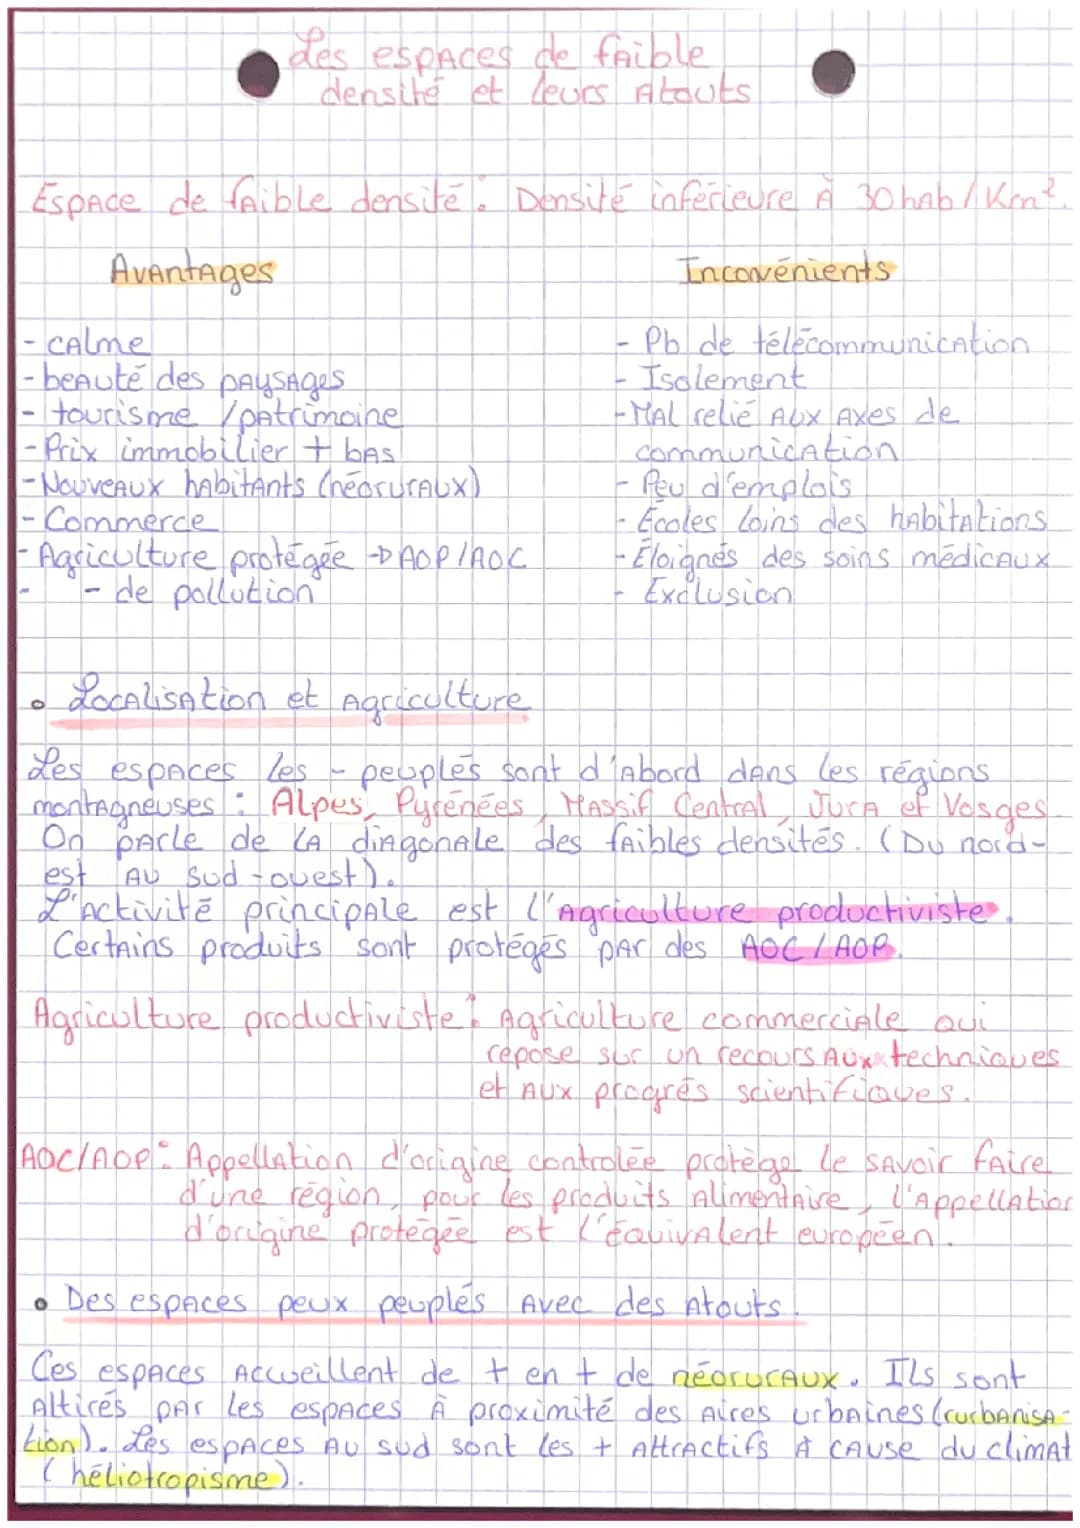 Les espaces de faible
densité et leurs Atouts
Espace de faible densité : Densité inférieure À 30 hab/Km².
Avantages
Inconvénients
- calme
- beauté des paysages
- tourisme / patrimoine
- Prix immobilier + bas
- Nouveaux habitants (néoruraux)
- Commerce
- Agriculture protégée → AOP/AOC
- - de pollution
- Pb de télécommunication
- Isolement
- Mal relié aux axes de
communication
- Peu d'emplois
- Écoles loins des habitations
- Éloignés des soins médicaux
- Exclusion
• Localisation et Agriculture
Les espaces les - peuplés sont d'abord dans les régions
montagneuses : Alpes, Pyrénées, Massif Central, Jura et Vosges.
On parle de la diagonale des faibles densités. (Du nord-
est au sud-ouest).
L'activité principale est l'agriculture productiviste.
Certains produits sont protégés par des AOC/AOP.
Agriculture productiviste : Agriculture commerciale qui
repose sur un recours aux techniques
et aux progrés scientifiques.
AOC/AOP : Appellation d'origine controlée protège le savoir faire
d'une région, pour les produits alimentaire, l'Appellation
d'origine protégée est l'équivalent européen.
• Des espaces peux peuplés avec des atouts.
Ces espaces accueillent de + en + de néoruraux. Ils sont
attirés par les espaces à proximité des aires urbaines (rurbanisa-
tion). Les espaces au sud sont les + attractifs à cause du climat
(héliotropisme).